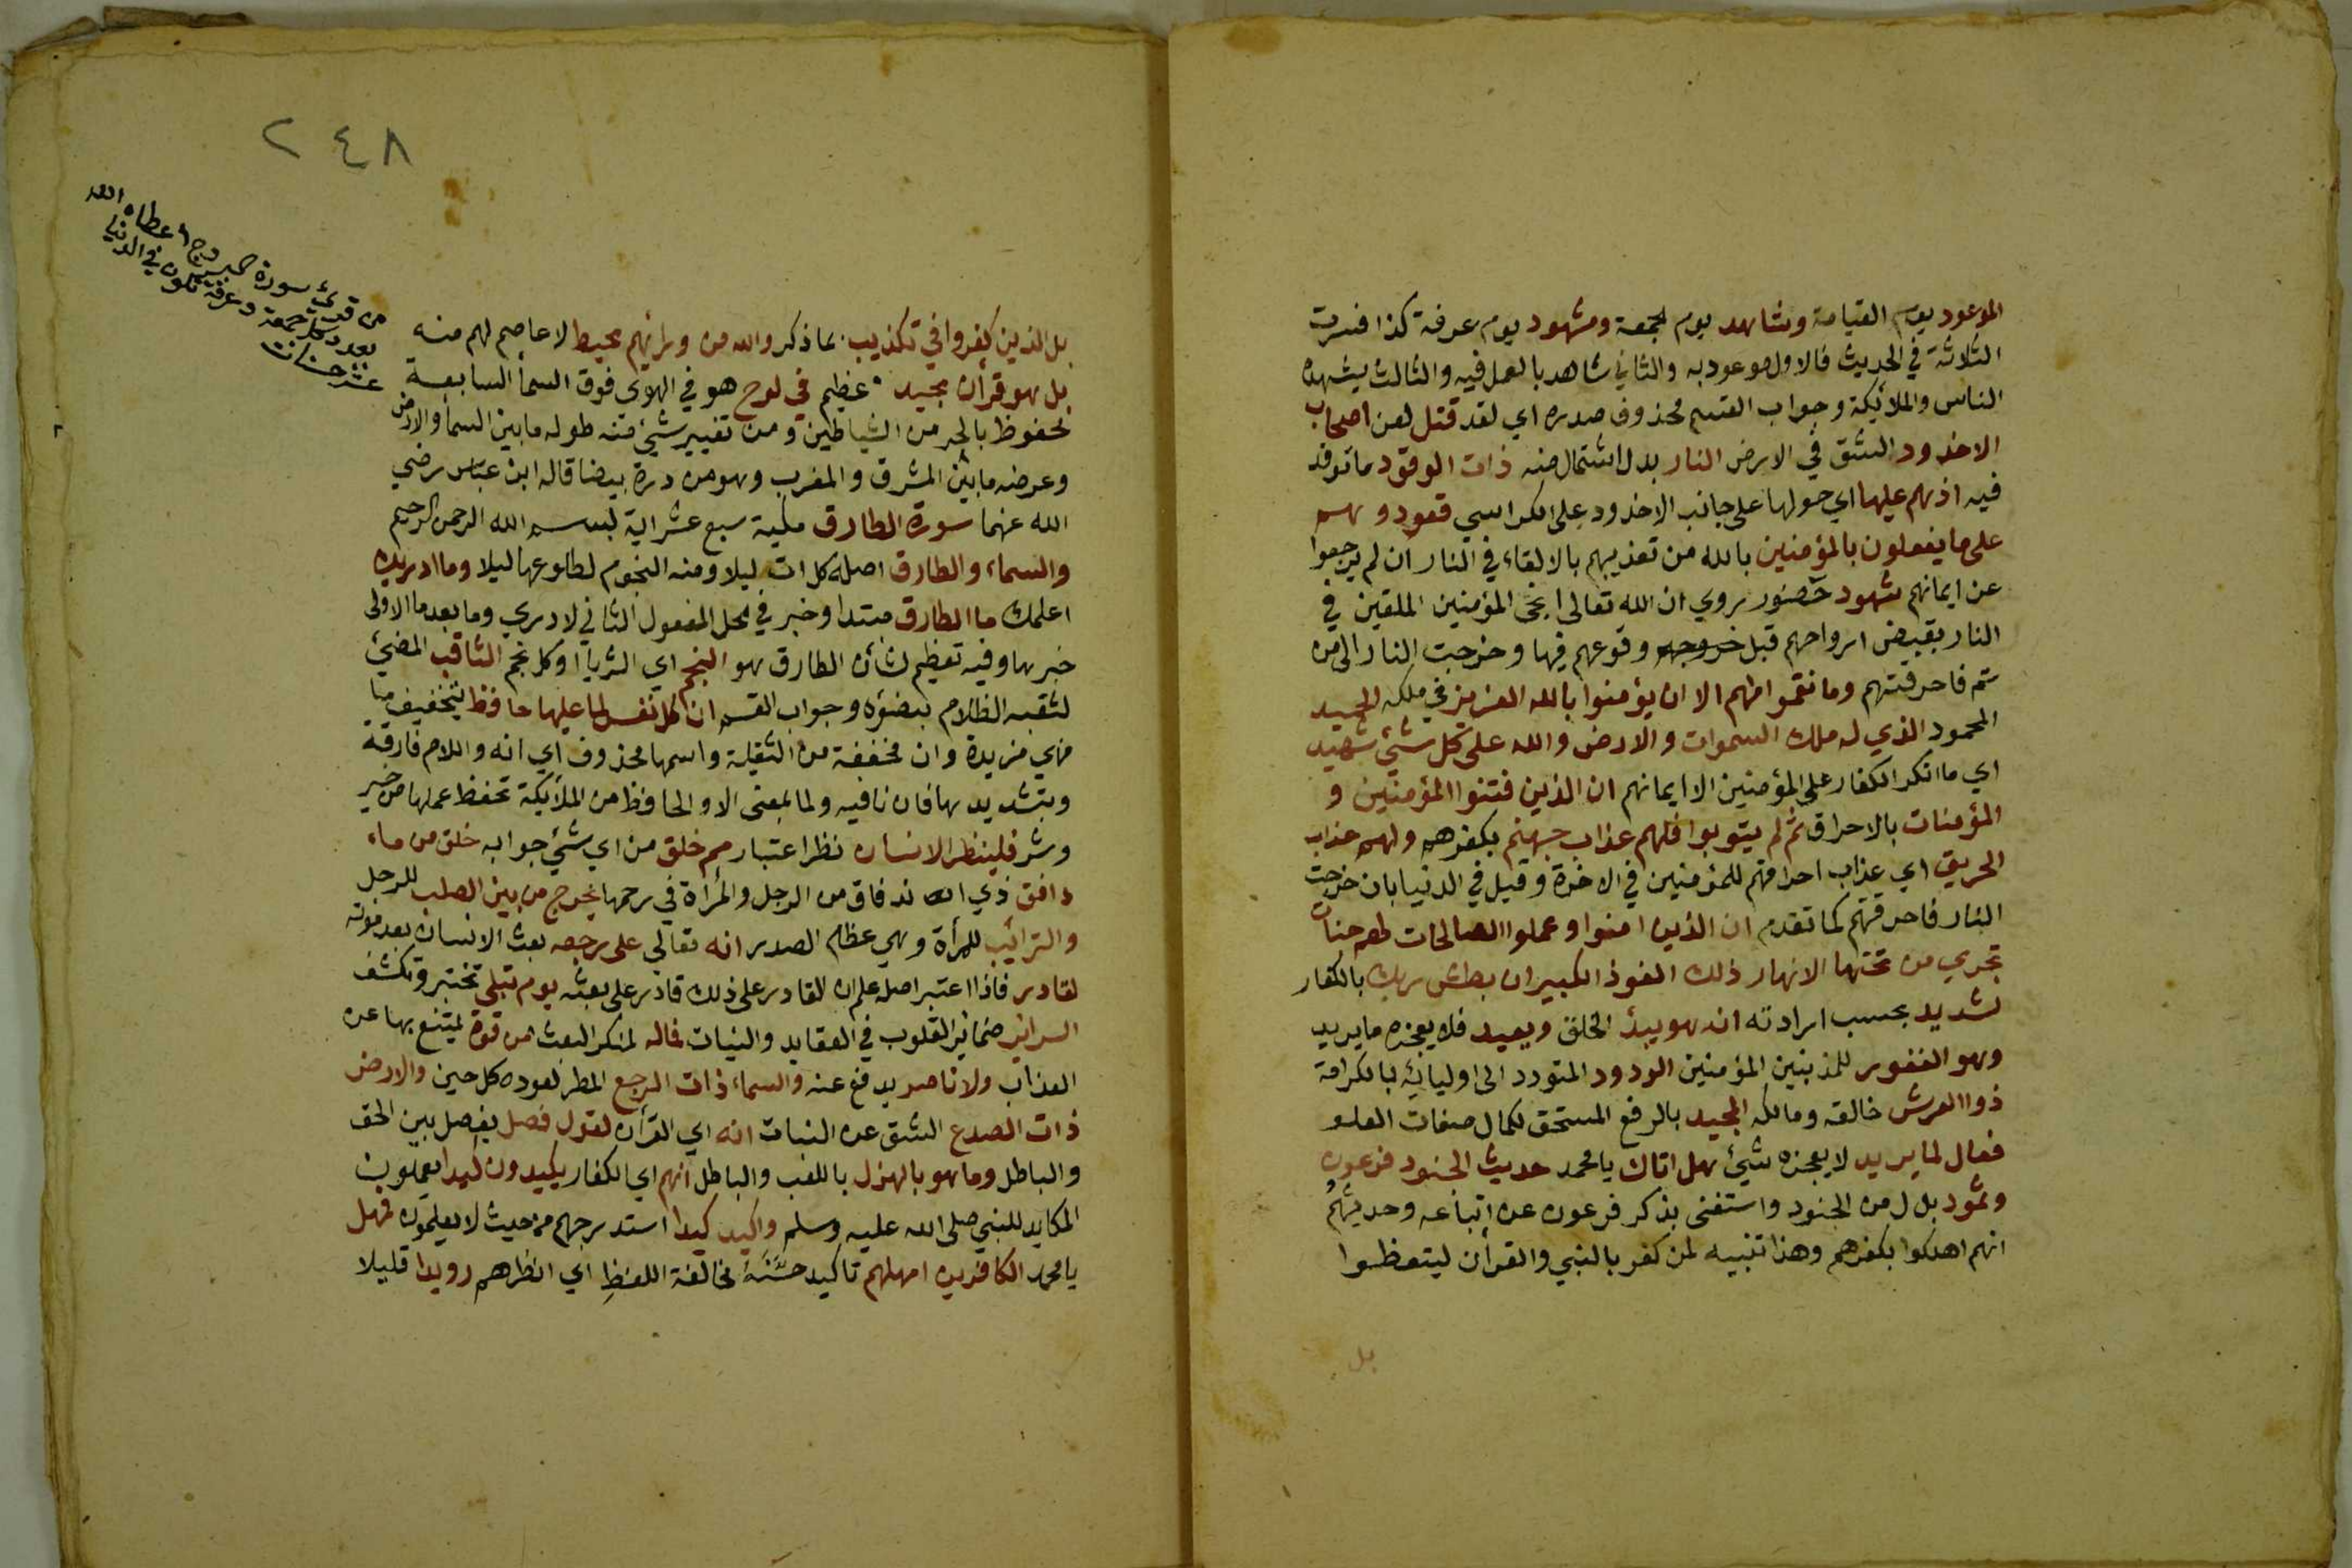 الموعود يوم القيامة وشاهد يوم الجمعة ومشهود يوم عرفة كذا فسرت
الثلاثة في الحديث فالاول موعود به والثاني شاهد بالعمل فيه والثالث يشهده
الناس والملائكة وجواب القسم محذوف صدره اي لقد قتل لعن اصحاب
الاخدود الشق في الارض النار بدل اشتمال منه ذات الوقود ما توقد
فيه اذ هم عليها اي حولها على جانب الاخدود على الكراسي قعود وهم
على ما يفعلون بالمؤمنين بالله من تعذيبهم بالالقاء في النار ان لم يرجعوا
عن ايمانهم شهود حضور روي ان الله تعالى انجى المؤمنين الملقين في
النار بقبض ارواحهم قبل وقوعهم فيها وخرجت النار الى من
ثم فاحرقتهم وما نقموا منهم الا ان يؤمنوا بالله العزيز في ملكه الحميد
المحمود الذي له ملك السموات والارض والله على كل شئ شهيد
اي ما انكر الكفار على المؤمنين الا ايمانهم ان الذين فتنوا المؤمنين و
المؤمنات بالاحراق ثم لم يتوبوا فلهم عذاب جهنم بكفرهم ولهم عذاب
الحريق اي عذاب احراقهم للمؤمنين في الاخرة وقيل في الدنيا بان خرجت
النار فاحرقتهم كما تقدم ان الذين امنوا وعملوا الصالحات لهم جنات
تجري من تحتها الانهار ذلك الفوز الكبير ان بطش ربك بالكفار
لشديد بحسب ارادته انه هو يبدئ الخلق ويعيد فلا يعجزه ما يريد
وهو الغفور للمذنبين المؤمنين الودود المتودد الى اوليائه بالكرامة
ذوا العرش خالقه ومالكه المجيد بالرفع المستحق لكمال صفات العلو
فعال لما يريد لا يعجزه شئ هل اتاك يا محمد حديث الجنود فرعون
وثمود بدل من الجنود واستغنى بذكر فرعون عن اتباعه وحديثهم
انهم اهلكوا بكفرهم وهذا تنبيه لمن كفر بالنبي والقرآن ليتعظوا
بل
٢٤٨
من قرئ سورة البروج اعطاه الله
بعدد كل جمعة وعرفة تكون في الدنيا
عشر حسنات
بل الذين كفروا في تكذيب بما ذكر والله من ورائهم محيط لا عاصم لهم منه
بل هو قرأن مجيد عظيم في لوح هو في الهوى فوق السمأ السابعة
محفوظ بالجر من الشياطين ومن تغيير شئ منه طوله ما بين السمأ والارض
وعرضه ما بين المشرق والمغرب وهو من درة بيضا قاله ابن عباس رضي
الله عنهما سورة الطارق مكية سبع عشر اية بسم الله الرحمن الرحيم
والسماء والطارق اصله كل ات ليلا ومنه النجوم لطلوعها ليلا وما ادريك
اعلمك ما الطارق مبتدا وخبر في محل المفعول الثاني لادري وما بعد ما الاولى
خبرها وفيه تعظيم لشأن الطارق هو النجم اي الثريا او كل نجم الثاقب المضئ
لثقبه الظلام بضوئه وجواب القسم ان كل نفس لما عليها حافظ بتخفيف ما
فهي مزيدة وان مخففة من الثقيلة واسمها محذوف اي انه واللام فارقة
وبتشديدها فان نافيه ولما بمعنى الا والحافظ من الملائكة تحفظ عملها من خير
وشر فلينظر الانسان نظر اعتبار مم خلق من اي شئ جوابه خلق من ماء
دافق ذي اندفاق من الرجل والمرأة في رحمها يخرج من بين الصلب للرجل
والترائب للمرأة وهي عظام الصدر انه تعالي على رجعه بعث الانسان بعد موته
لقادر فاذا اعتبر اصله علم ان القادر على ذلك قادر على بعثه يوم تبلي تختبر وتكشف
السرائر ضمائر القلوب في العقايد والنيات فماله لمنكر البعث من قوة يمتنع بها عن
العذاب ولا ناصر يدفع عنه والسماء ذات الرجع المطر لعوده كل حين والارض
ذات الصدع الشق عن النبات انه اي القرأن لقول فصل يفصل بين الحق
والباطل وما هو بالهزل باللعب والباطل انهم اي الكفار يكيدون كيدا يعملون
المكايد للنبي صلى الله عليه وسلم واكيد كيدا استدرجهم من حيث لا يعلمون فمهل
يا محمد الكافرين امهلهم تاكيد حسنه مخالفة اللفظ اي انظرهم رويدا قليلا